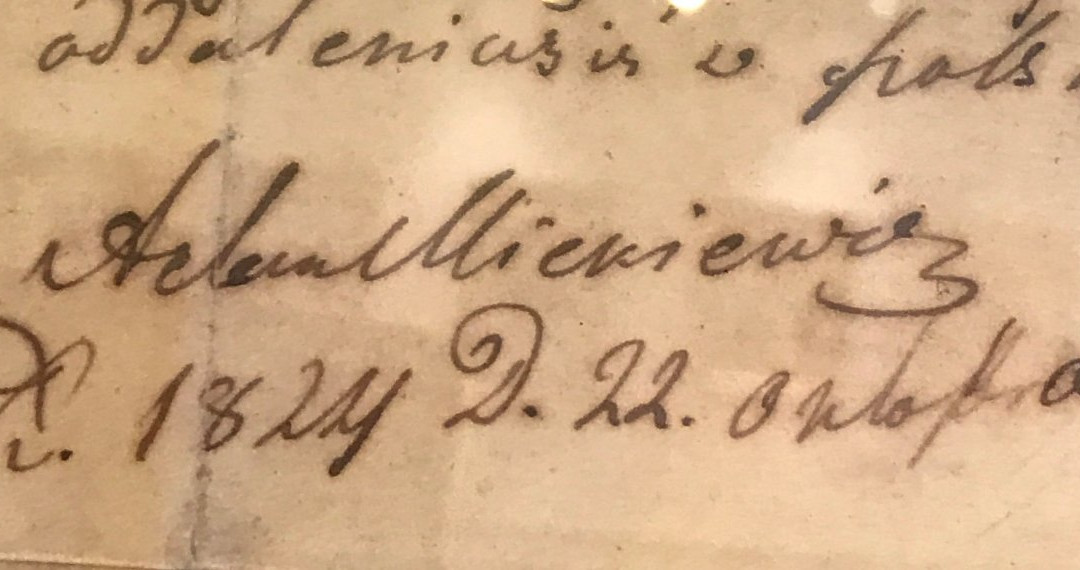 oddaleniu się w
Adam Mickiewicz
R. 1824 D. 22. Oktobra